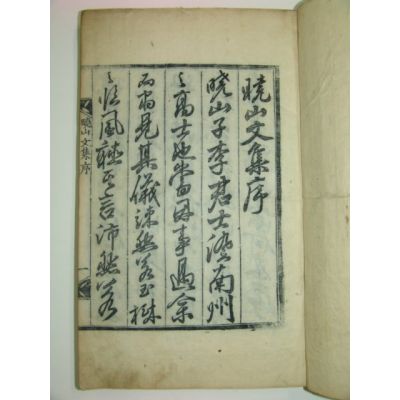 曉山文集序
曉山子李君士南州
之高士也嘗因事過余
而見其儀然若玉樹
之臨風聽其言沛然若
曉山文集序
一